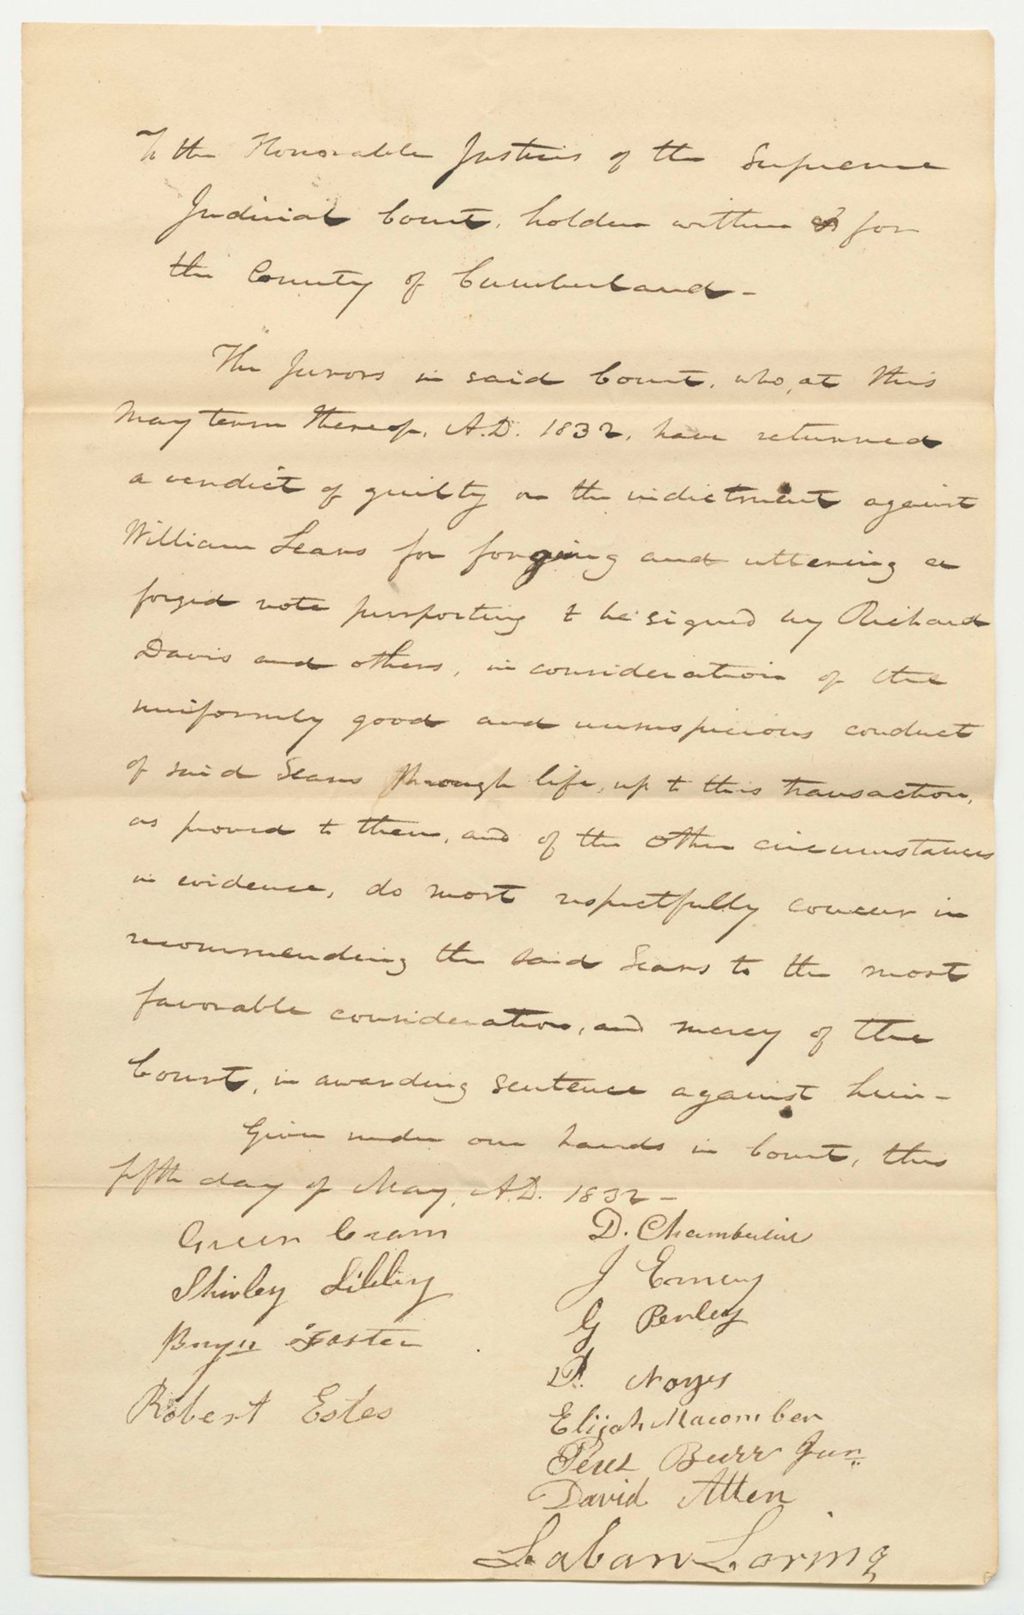 To the Honorable Justices of the Supreme
Judicial Court, holden within & for
the County of Cumberland -
The Jurors in said Court, who, at this
May term thereof, A.D. 1832, have returned
a verdict of guilty on the indictment against
William Sears for forging and uttering a
forged note purporting to be signed by Richard
Davis and others, in consideration of the
uniformly good and unsuspicious conduct
of said Sears through life, up to this transaction,
as proved to them, and of the other circumstances
in evidence, do most respectfully concur in
recommending the said Sears to the most
favorable consideration, and mercy of the
Court, in awarding sentence against him -
Given under our hands in Court, this
fifth day of May, A.D. 1832 -
Green Cram
Shirley Libby
Foster
Robert Estes
D. Chamberlin
J Emery
G Perley
Noyes
Elijah Macomber
Perez Burr Jun.
David Allen
Laban Loring